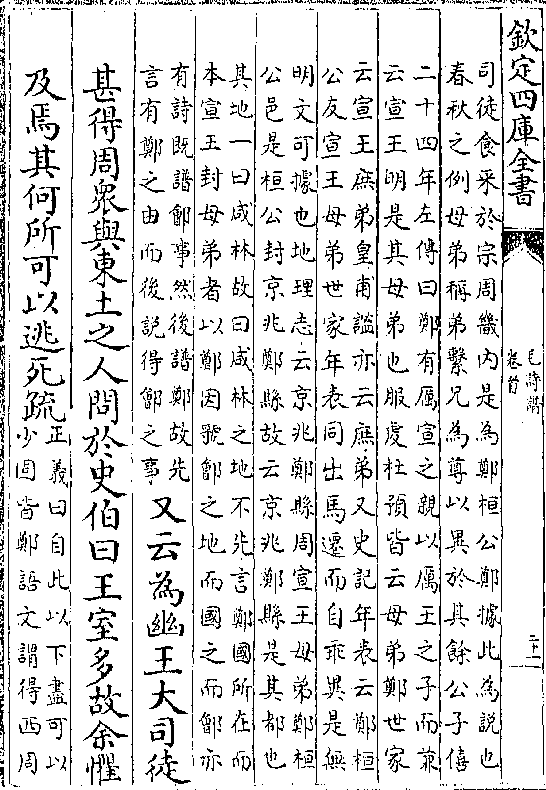 欽定四庫全書
毛詩譜
卷首
二十一
司徒食采於宗周畿內是為鄭桓公鄭據此為說也
春秋之例母弟稱弟繫兄為尊以異於其餘公子僖
二十四年左傳曰鄭有厲宣之親以厲王之子而兼
云宣王明是其母弟也服虔杜預皆云母弟鄭世家
云宣王庶弟皇甫謐亦云庶弟又史記年表云鄭桓
公友宣王母弟世家年表同出馬遷而自乖異是無
明文可據也地理志云京兆鄭縣周宣王母弟鄭桓
公邑是桓公封京兆鄭縣故云京兆鄭縣是其都也
其地一曰咸林故曰咸林之地不先言鄭國所在而
本宣王封母弟者以鄭因虢鄶之地而國之而鄶亦
有詩既譜鄶事然後譜鄭故先
言有鄭之由而後說得鄶之事
又云為幽王大司徒
甚得周衆與東土之人問於史伯曰王室多故余懼
及焉其何所可以逃死疏
正義曰自此以下盡可以
少固皆鄭語文謂得西周